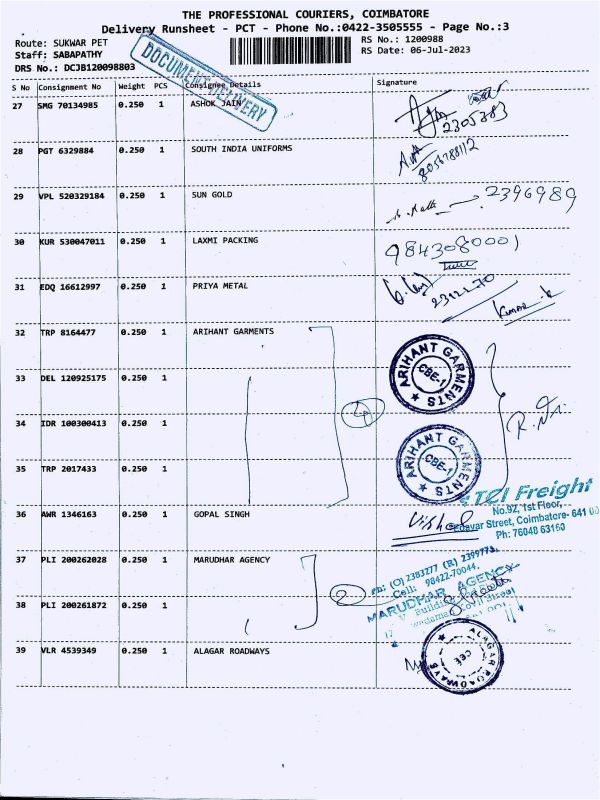 THE PROFESSIONAL COURIERS, COIMBATORE
Delivery Runsheet - PCT - Phone No.:0422-3505555 - Page No.:3
Route: SUKWAR PET
RS No.: 1200988
Staff: SABAPATHY
RS Date: 06-Jul-2023
DRS No.: DCJB120098803
DOCUMENT DELIVERY
S No Consignment No Weight PCS Consignee Details Signature
27 SMG 70134985 0.250 1 ASHOK JAIN
2305383
28 PGT 6329884 0.250 1 SOUTH INDIA UNIFORMS
29 VPL 520329184 0.250 1 SUN GOLD 2396989
30 KUR 530047011 0.250 1 LAXMI PACKING 9843080001
31 EDQ 16612997 0.250 1 PRIYA METAL
Kumar
32 TRP 8164477 0.250 1 ARIHANT GARMENTS
ARIHANT GARMENTS CBE-1
33 DEL 120925175 0.250 1
4
34 IDR 100300413 0.250 1
ARIHANT GARMENTS CBE-1
35 TRP 2017433 0.250 1
TCI Freight
No.92, 1st Floor,
36 AWR 1346163 0.250 1 GOPAL SINGH Vishal
Street, Coimbatore- 641 00
Ph: 76048 63150
37 PLI 200262028 0.250 1 MARUDHAR AGENCY
Ph: (O) 2383277 (R) 2399773
Cell: 98422-70044
MARUDHAR AGENCY
2
38 PLI 200261872 0.250 1
39 VLR 4539349 0.250 1 ALAGAR ROADWAYS
ALAGAR ROADWAYS